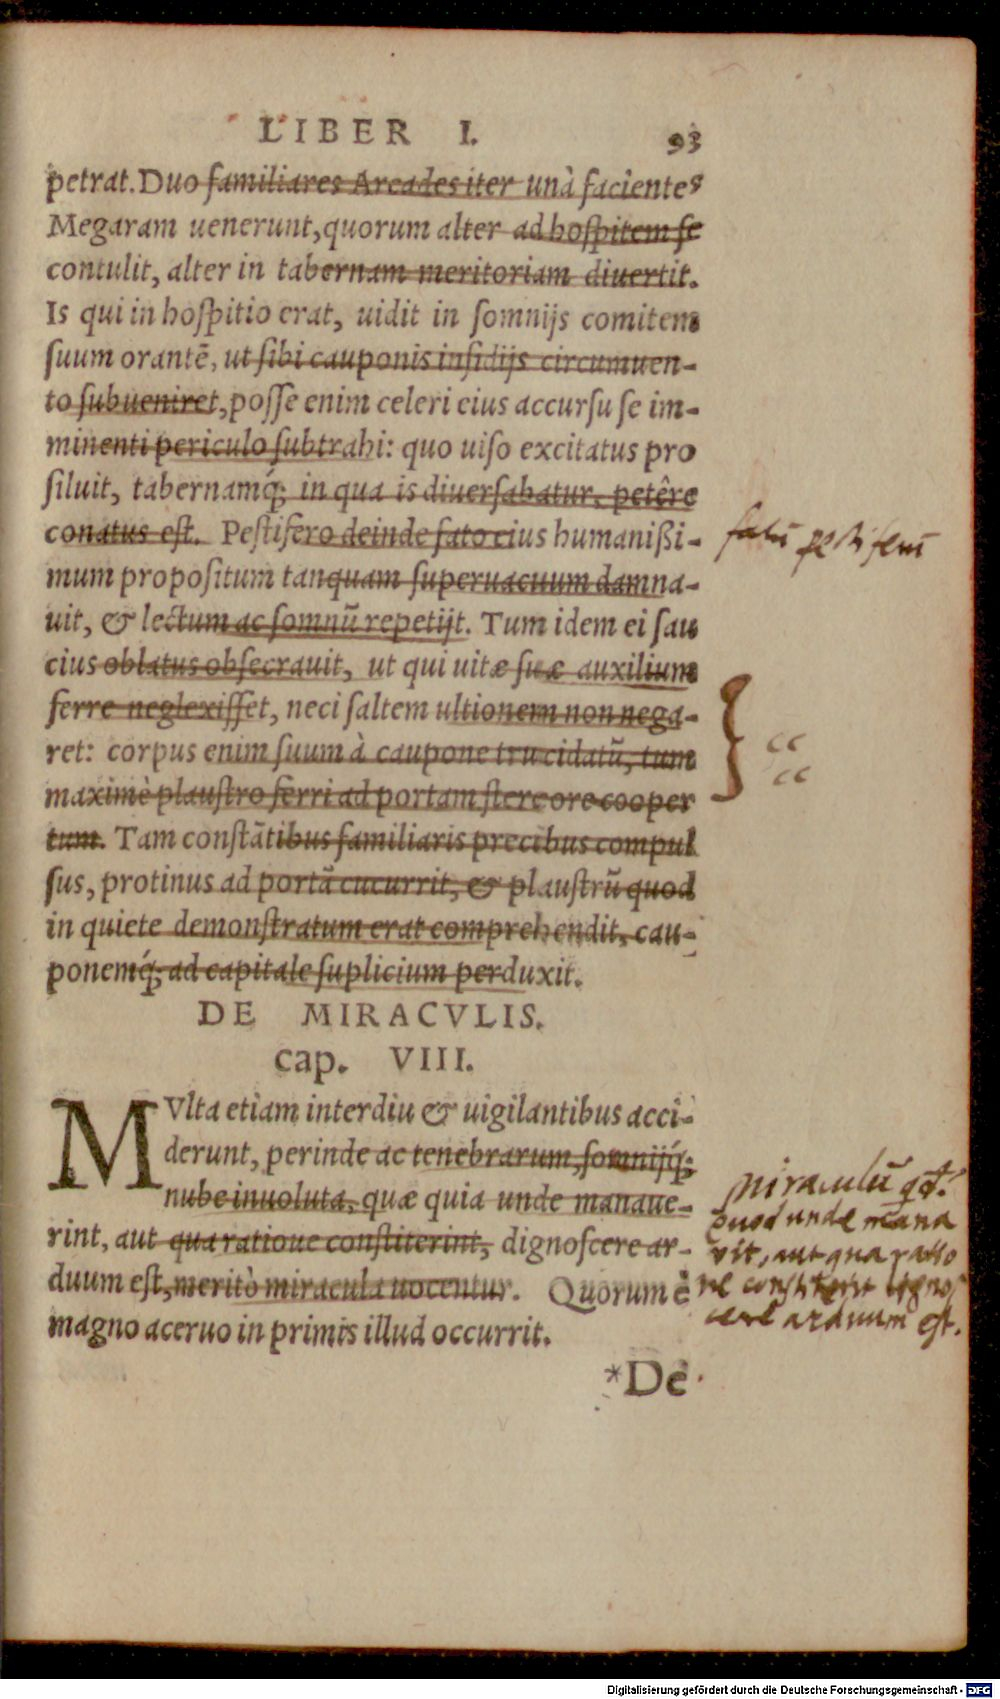 LIBER I. 93
petrat. Duo familiares Arcades iter unà facientes
Megaram uenerunt, quorum alter ad hoſpitem ſe
contulit, alter in tabernam meritoriam diuertit.
Is qui in hoſpitio erat, uidit in ſomnijs comitem
ſuum orantē, ut ſibi cauponis inſidijs circumuen-
to ſubueniret, poſſe enim celeri eius accurſu ſe im-
minenti periculo ſubtrahi: quo uiſo excitatus pro
ſiluit, tabernamq́; in qua is diuerſabatur, petêre
conatus eſt. Peſtifero deinde fato eius humanißi-
mum propoſitum tanquam ſuperuacuum damna-
uit, & lectum ac ſomnũ repetijt. Tum idem ei ſau
cius oblatus obſecrauit, ut qui uitæ ſuæ auxilium
ferre neglexiſſet, neci ſaltem ultionem non nega-
ret: corpus enim ſuum à caupone trucidatũ, tum
maximè plauſtro ferri ad portam ſtercore cooper
tum. Tam conſtãtibus familiaris precibus compul
ſus, protinus ad portã cucurrit, & plauſtrũ quod
in quiete demonſtratum erat comprehendit, cau-
ponemq́; ad capitale ſuplicium perduxit.
fatũ peſtiferũ
DE MIRACVLIS.
cap. VIII.
MVlta etiam interdiu & uigilantibus acci-
derunt, perinde ac tenebrarum, ſomnijq́;
nube inuoluta, quæ quia unde manaue-
rint, aut qua ratione conſtiterint, dignoſcere ar-
duum eſt, meritò miracula uocentur. Quorum è
magno aceruo in primis illud occurrit.
*De
miraculũ
quod unde mana
vit, aut qua ratio
ne conſtiterit dignoſ
cere arduum eſt.
Digitalisierung gefördert durch die Deutsche Forschungsgemeinschaft - DFG